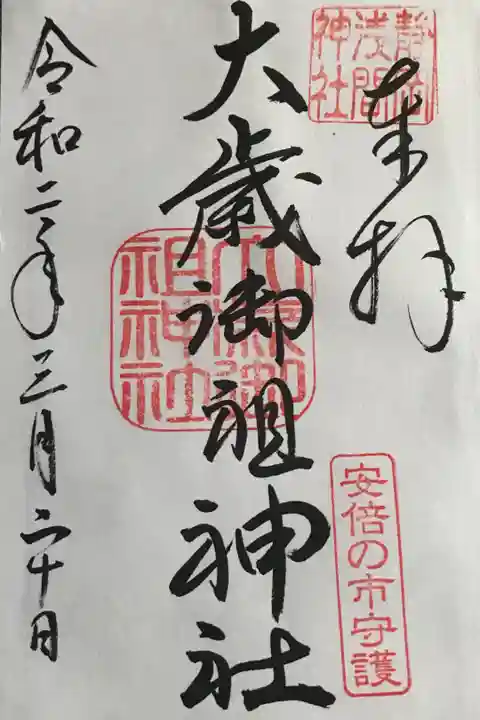 奉拝
静岡
浅間
神社
安倍の市守護
大歳御祖神社
大歳御
祖神社
令和二年三月二十日